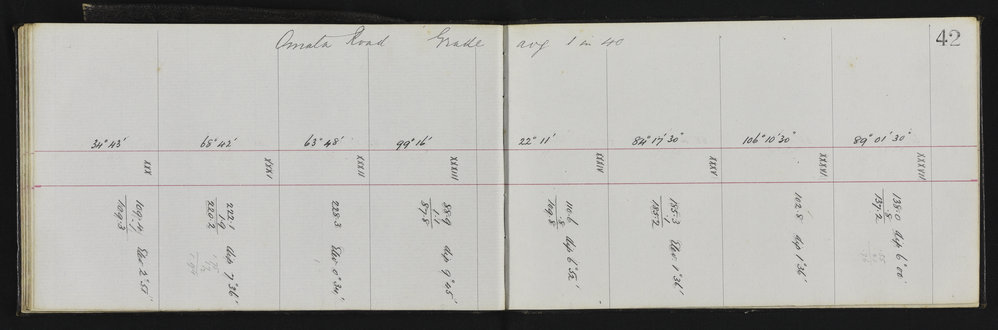 Omata Road Grade avg 1 in 40
42
34° 43' 68° 42' 63° 48' 99° 16' 22° 11' 84° 17' 30" 106° 10' 30" 89° 01' 30"
XXX XXXI XXXII XXXIII XXXIV XXXV XXXVI XXXVII
109.3 Elev 2° 55'
222.1
1.9
220.2 dep 7° 36'
228.3 Elev 0° 34'
88.9
1.1
87.8 dep 9° 45'
110.6
.8
109.8 dep 6° 52'
185.3
.1
185.2 Elev 1° 36'
102.8 dep 1° 36'
138.0
.8
137.2 dep 6° 00'